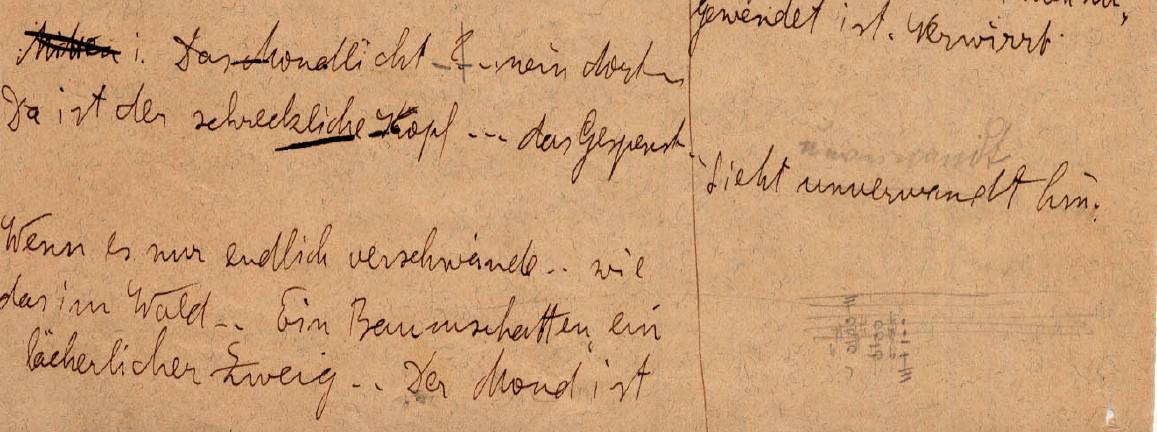 i. Das Mondlicht ... nein dort ..
Da ist der schreckliche Kopf ... das Gespenst..
Wenn es nur endlich verschwände .. wie
das im Wald .. Ein Baumschatten, ein
lächerlicher Zweig .. Der Mond ist
gewendet ist. Verwirrt.
Sieht unverwandt hin.